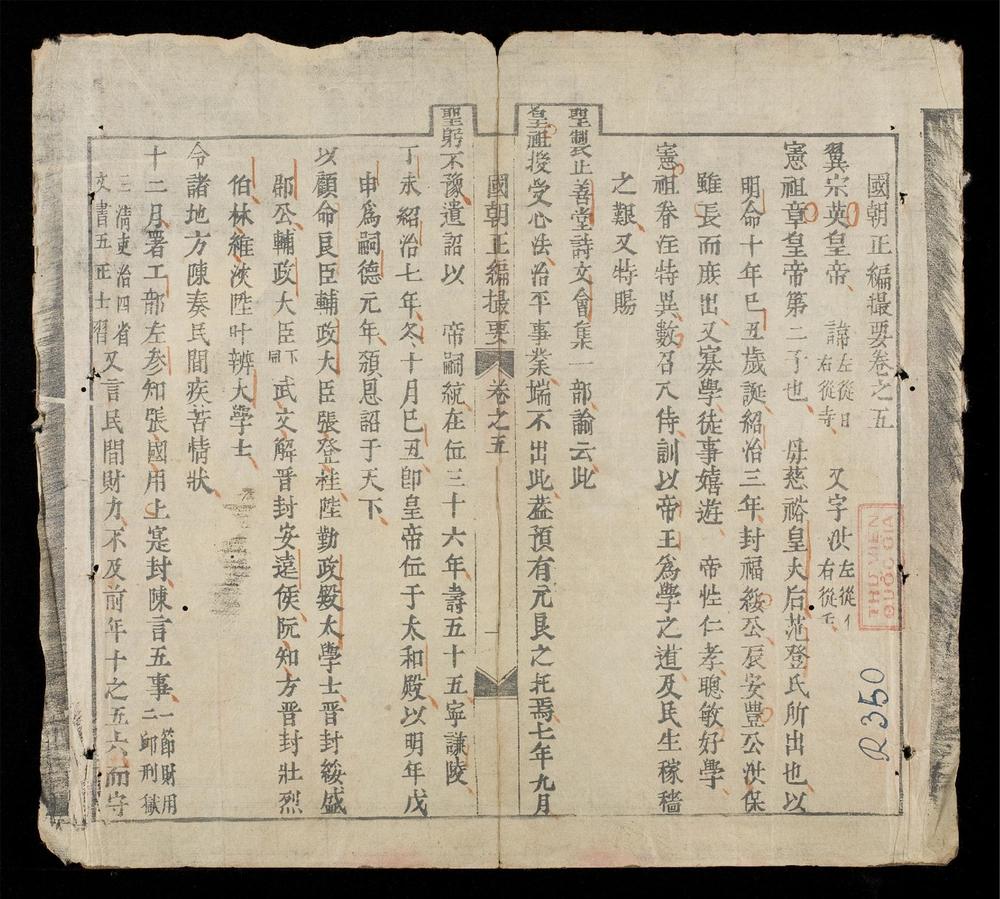 國朝正編撮要卷之五
翼宗英皇帝 諱左從日右從寺 又字洪左從亻右從壬
憲祖章皇帝第二子也 母慈裕皇太后范登氏所出也以
明命十年己丑歲誕紹治三年封福綏公辰安豐公洪保
雖長而庶出又寡學徒事嬉遊 帝性仁孝聰敏好學
憲祖眷注特異數召入侍訓以帝王爲學之道及民生稼穡
之艱又特賜
聖製止善堂詩文會集一部諭云此
皇祖授受心法治平事業端不出此葢預有元良之托焉七年九月
國朝正編撮要 卷之五 一
聖躬不豫遺詔以 帝嗣統在位三十六年壽五十五寧謙陵
丁未紹治七年冬十月己丑卽皇帝位于太和殿以明年戊
申爲嗣德元年頒恩詔于天下
以顧命良臣輔政大臣張登桂陞勤政殿太學士晋封綏盛
郡公輔政大臣下同武文解晋封安遠侯阮知方晋封壯烈
伯林維浹陞叶辨大學士
令諸地方陳奏民間疾苦情狀
十二月署工部左參知張國用上寔封陳言五事一節財用二卹刑獄
三淸吏治四省文書五正士習又言民間財力不及前年十之五六而守
THƯ VIỆN
QUỐC GIA
R350